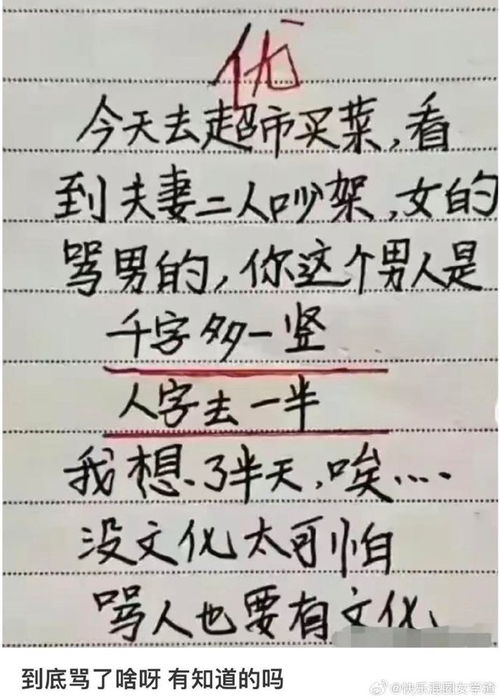 优
今天去超市买菜,看
到夫妻二人吵架,女的
骂男的,你这个男人是
千字多一竖
人字去一半
我想了半天,唉....
没文化太可怕
骂人也要有文化
到底骂了啥呀 有知道的吗